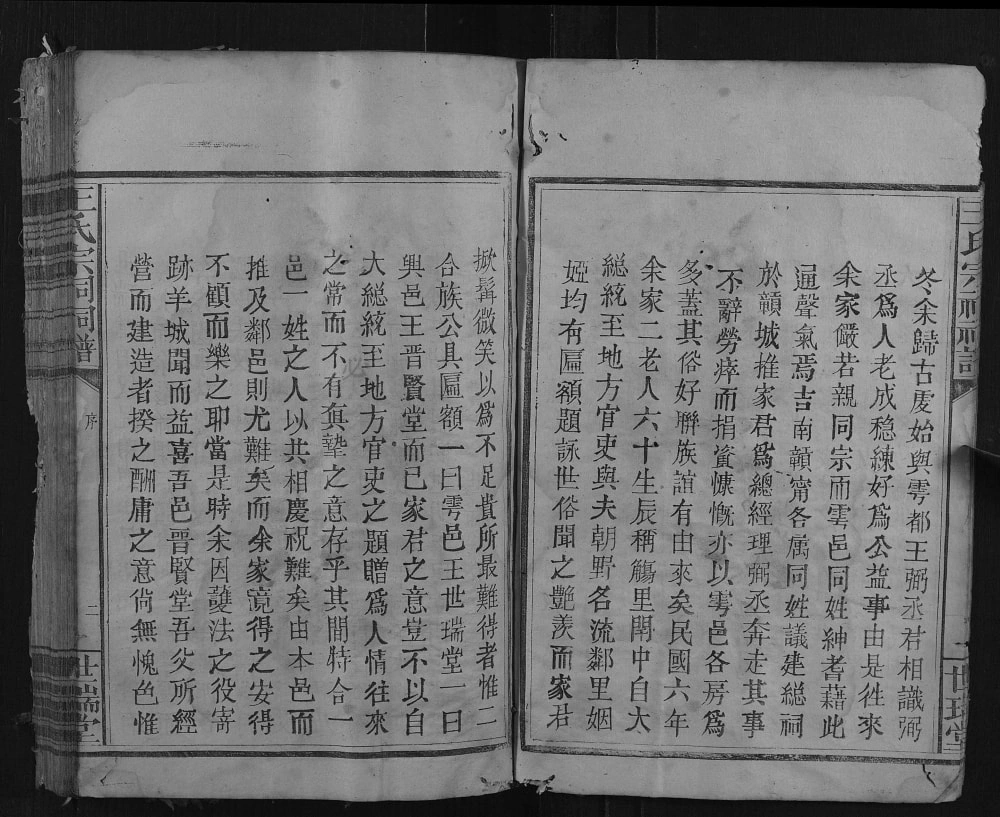 王氏宗祠祠譜
世瑞堂
冬余歸古虔始與雩都王弼丞君相識弼
丞爲人老成稳練好爲公益事由是徃來
余家儼若親同宗而雩邑同姓紳耆藉此
通聲氣焉吉南贛甯各属同姓議建総祠
於贛城推家君爲總經理弼丞奔走其事
不辭勞瘁而捐貲慷慨亦以雩邑各房爲
多蓋其俗好聯族誼有由來矣民國六年
余家二老人六十生辰稱觴里閈中自大
総統至地方官吏與夫朝野名流鄰里姻
婭均有匾額題詠世俗聞之艶羨而家君
掀髯微笑以爲不足貴所最難得者惟二
合族公具匾額一曰雩邑王世瑞堂一曰
興邑王晋賢堂而已家君之意豈不以自
大総統至地方官吏之題贈爲人情往來
之常而不有真摯之意存乎其間特合一
邑一姓之人以共相慶祝難矣由本邑而
推及鄰邑則尤難矣而余家竟得之安得
不顧而樂之耶當是時余因變法之役寄
跡羊城聞而益喜吾邑晋賢堂吾父所經
營而建造者揆之酬庸之意尙無愧色惟
王氏宗祠祠譜
序
二
世瑞堂